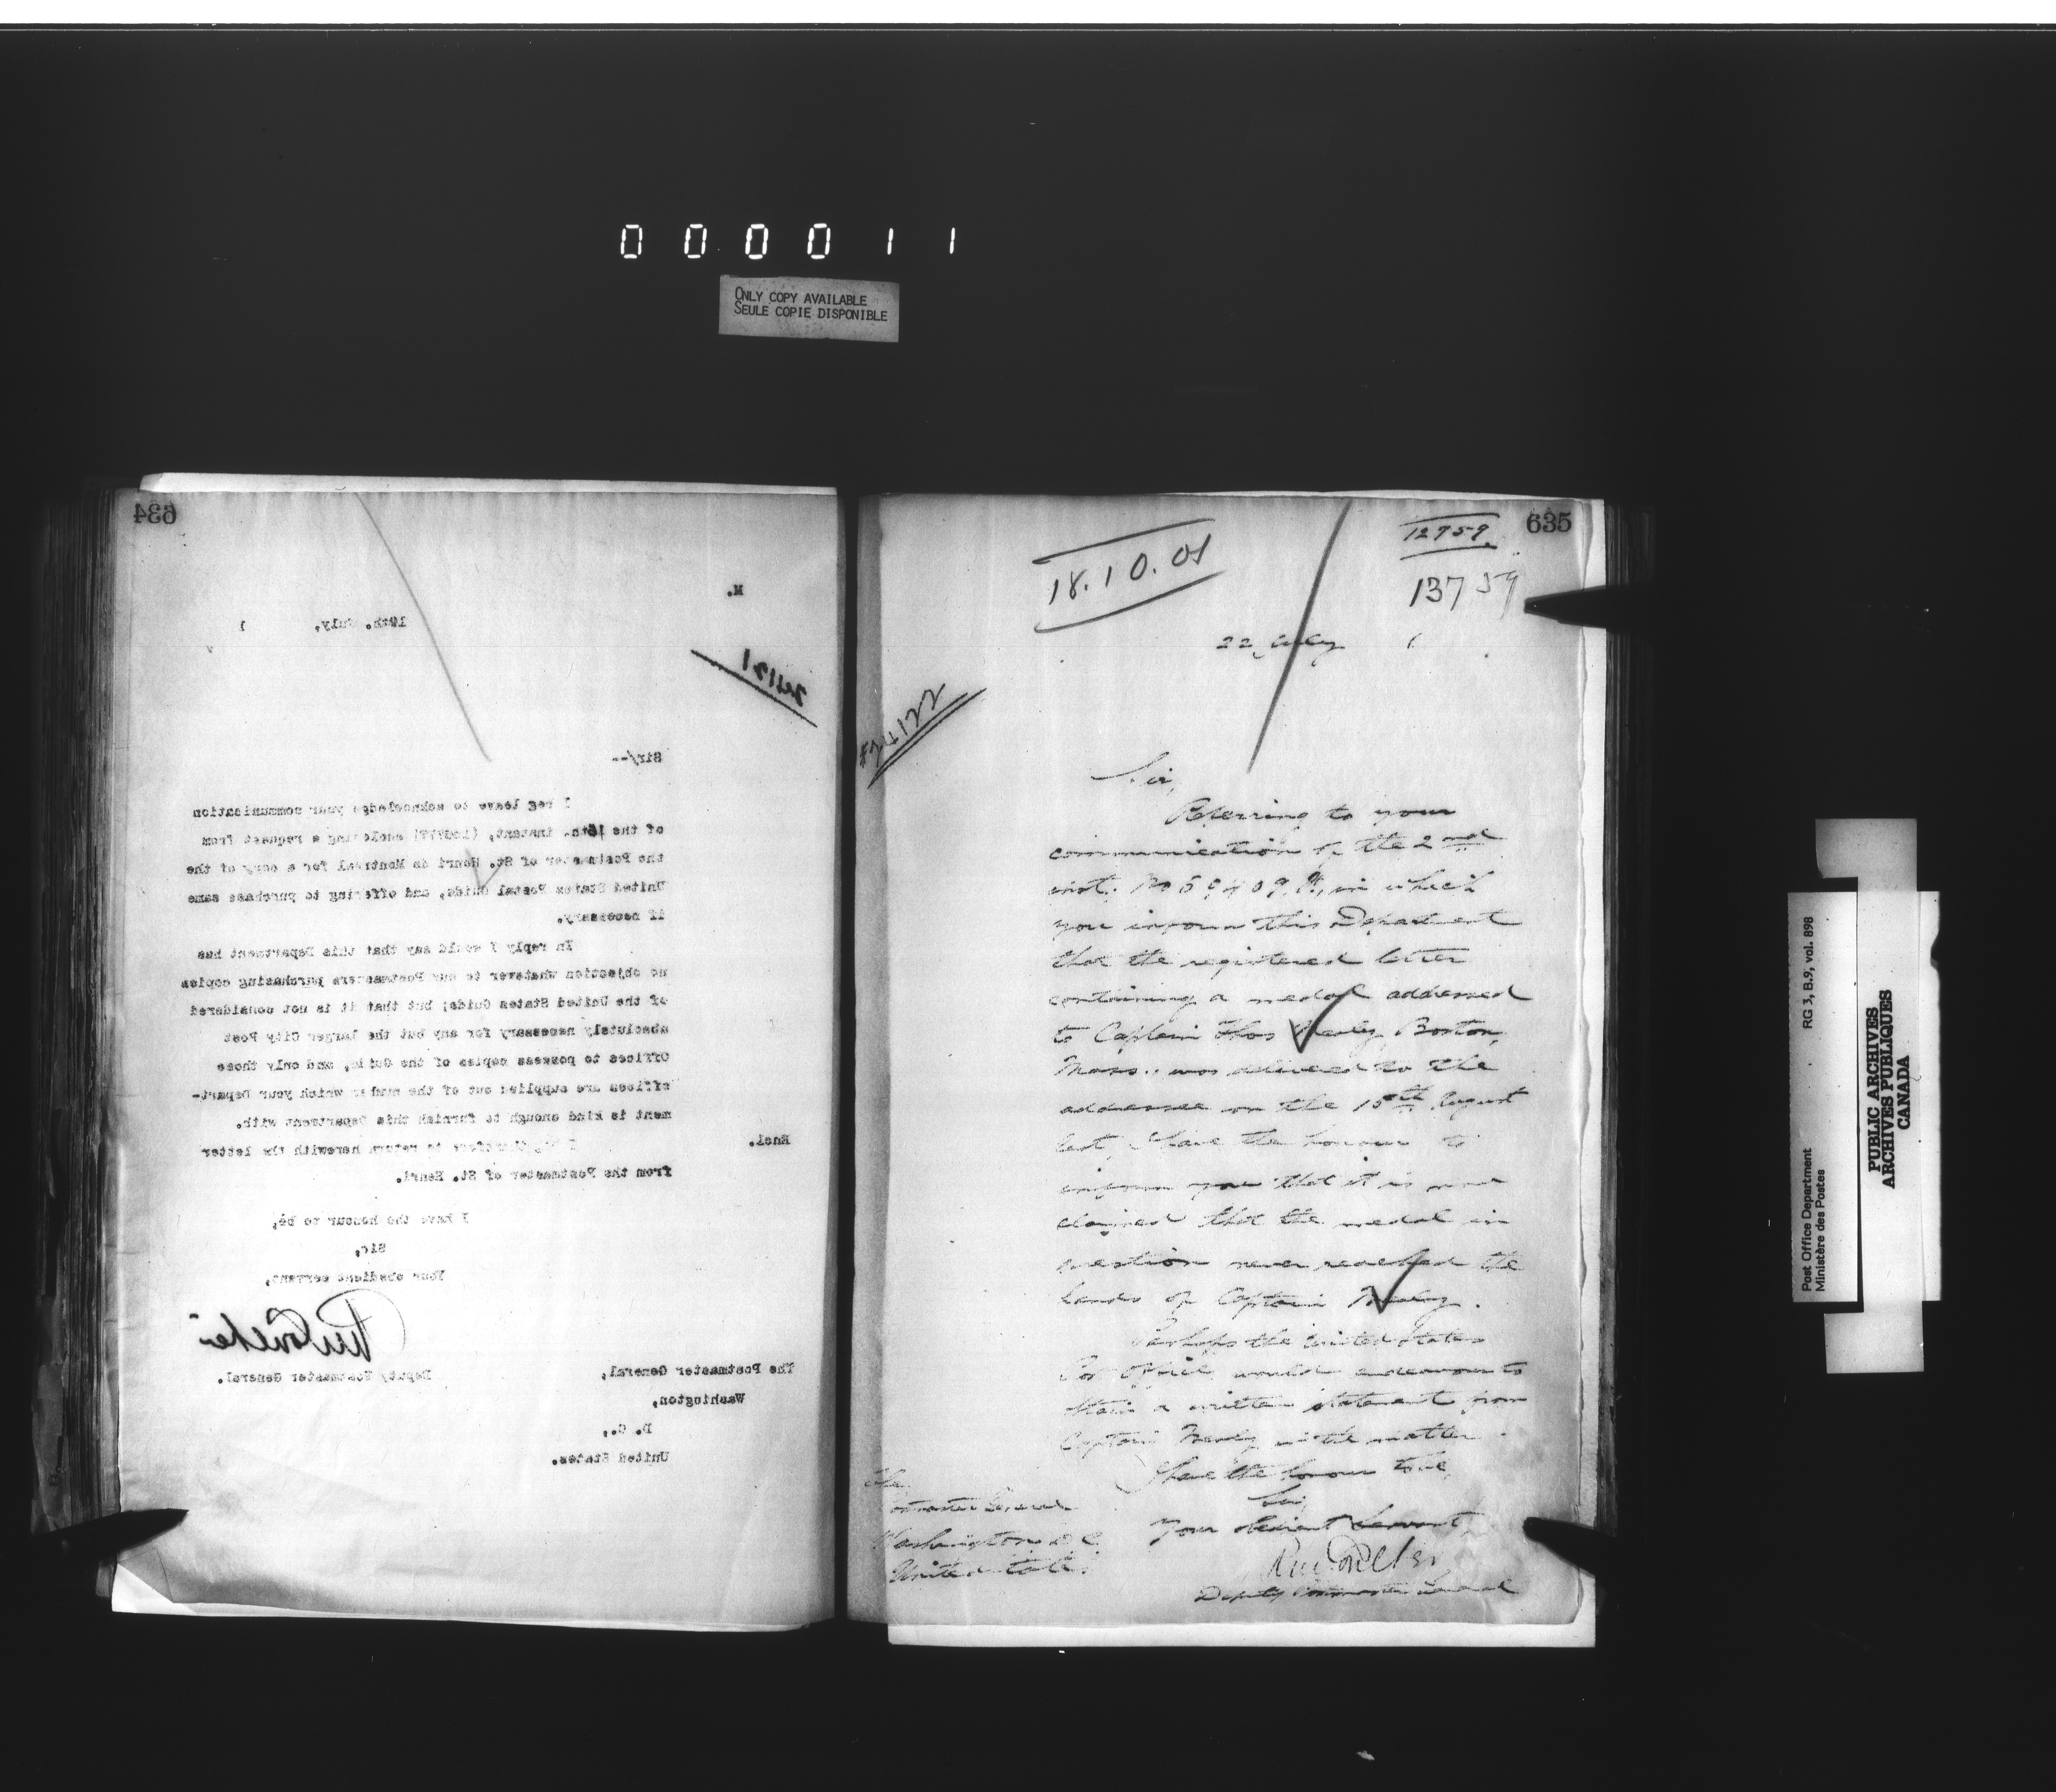 000011
ONLY COPY AVAILABLE
SEULE COPIE DISPONIBLE
634
M.
19th. July, 1
24121
Sir/--
I beg leave to acknowledge your communication
of the 16th. instant, enclosing a request from
the Postmaster of St. Henri de Montreal for a copy of the
United States Postal Guide, and offering to purchase same
if necessary.
In reply I would say that this Department has
no objection whatever to our Postmasters purchasing copies
of the United States Guide; but that it is not considered
absolutely necessary for any but the larger City Post
Offices to possess copies of the Guide, and only those
offices are supplied out of the number which your Depart-
ment is kind enough to furnish this Department with.
Encl.
I beg therefore to return herewith the letter
from the Postmaster of St. Henri.
I have the honour to be,
Sir,
Your obedient servant,
Deputy Postmaster General.
The Postmaster General,
Washington,
D. C.,
United States.
635
12959
13759
18.10.01
22 July 1
#24122
Sir,
Referring to your
communication of the 2nd
inst. No in which
you inform this Department
that the registered letter
containing a medal addressed
to Captain Thos Boston,
Mass. was delivered to the
addressee on the 15th August
last, I have the honour to
inform you that it is now
claimed that the medal in
question never reached the
hands of Captain
Perhaps the United States
Post Office would endeavour to
obtain a written statement from
Captain in the matter.
I have the honour to be,
Sir,
Your obedient Servant,
Deputy Postmaster General
The
Postmaster General
Washington D C
United States.
Post Office Department RG 3, B.9, vol. 898
Ministère des Postes
PUBLIC ARCHIVES
ARCHIVES PUBLIQUES
CANADA